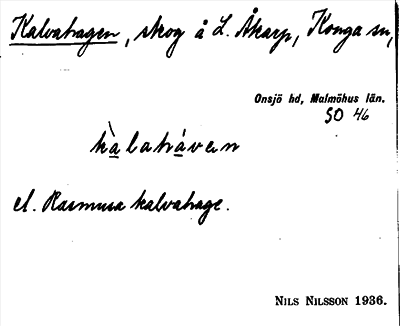 Kalvahagen, skog å L. Åkarp, Konga sn,
Onsjö hd, Malmöhus län.
SO 46
kàlaháven
el. Rasmusa kalvahage.
NILS NILSSON 1936.